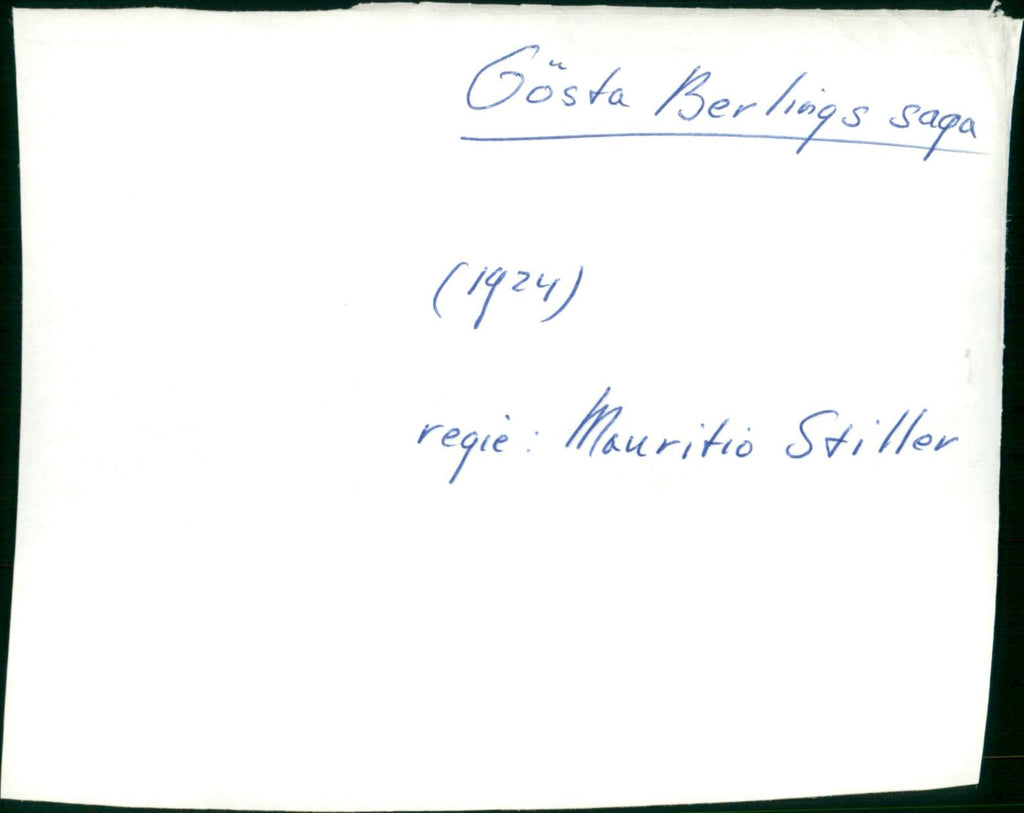 Gösta Berlings saga
(1924)
regie: Mauritio Stiller